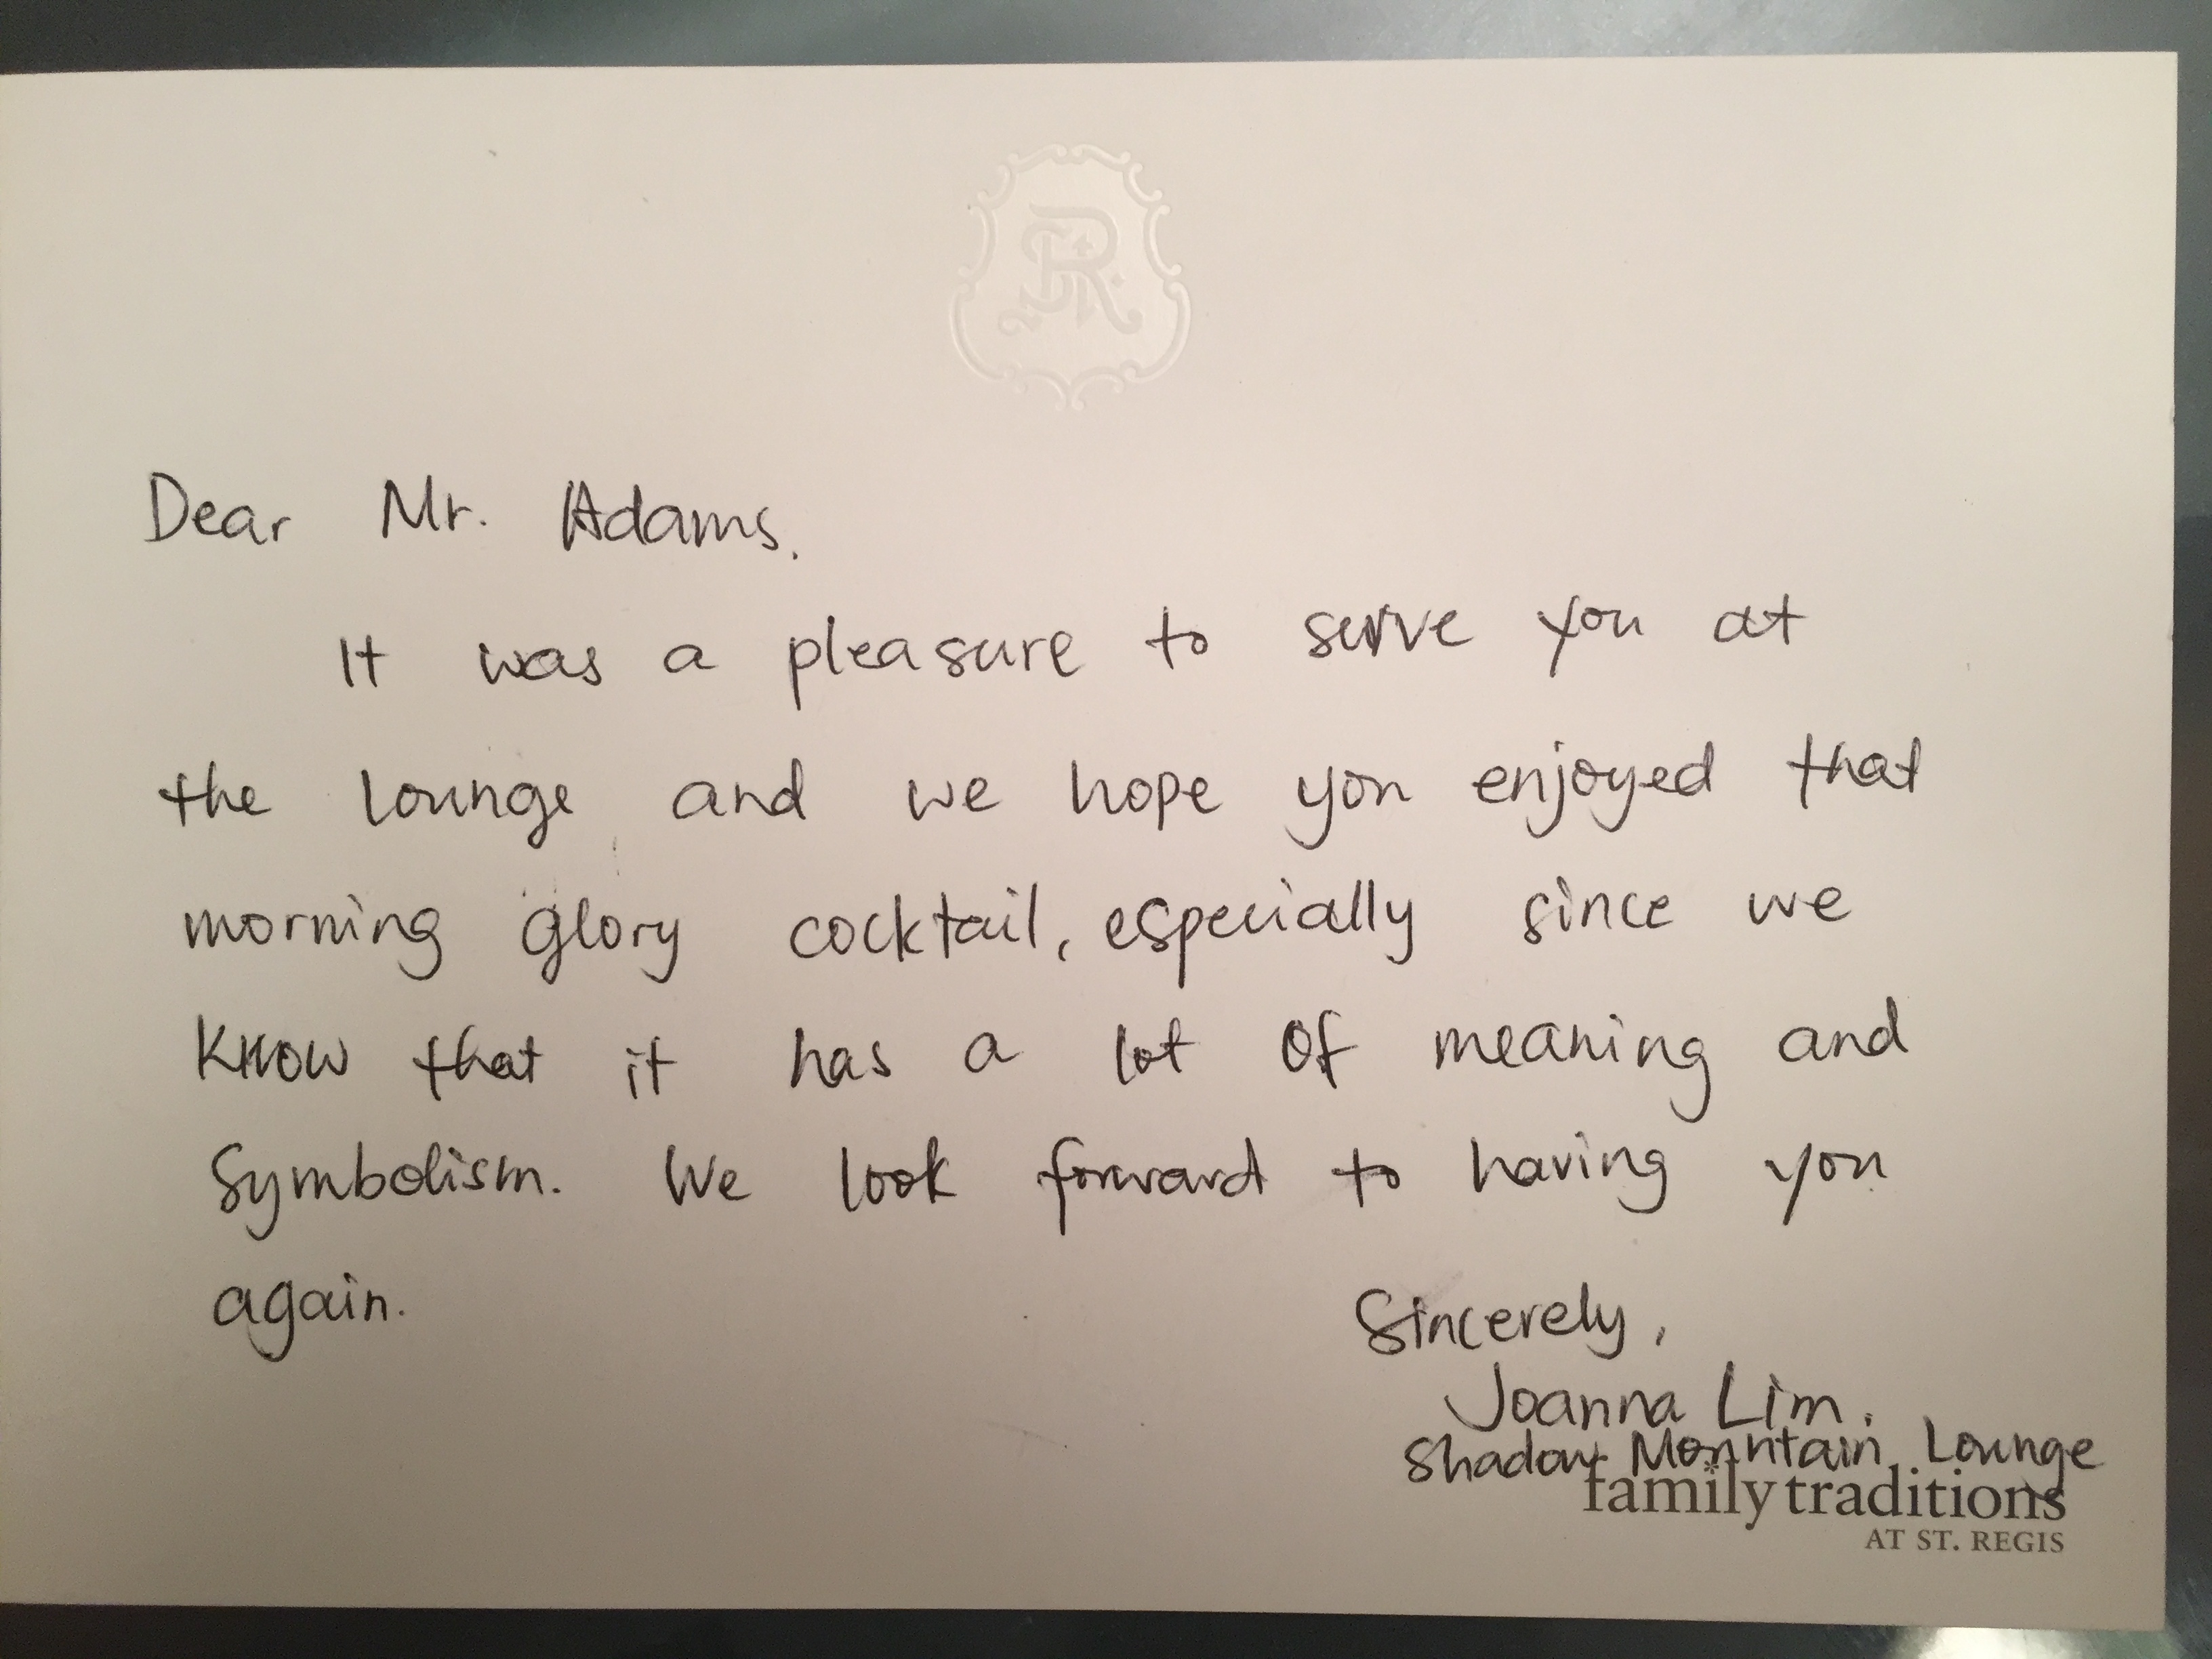 SR
Dear Mr. Adams.
It was a pleasure to serve you at
the lounge and we hope you enjoyed that
morning glory cocktail, especially since we
know that it has a lot of meaning and
symbolism. We look forward to having you
again.
Sincerely,
Joanna Lim.
Shadow Mountain Lounge
family traditions
AT ST. REGIS